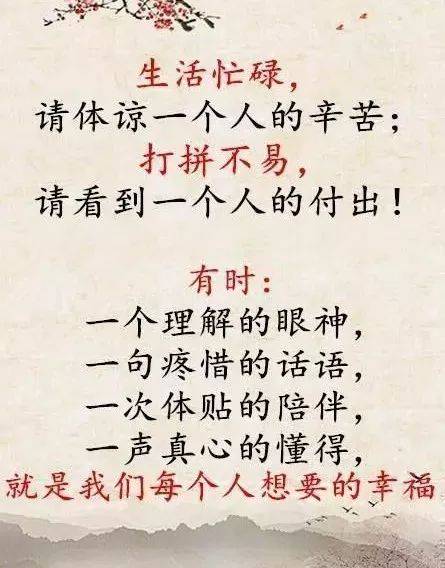 生活忙碌，
请体谅一个人的辛苦；
打拼不易，
请看到一个人的付出！
有时：
一个理解的眼神，
一句疼惜的话语，
一次体贴的陪伴，
一声真心的懂得，
就是我们每个人想要的幸福